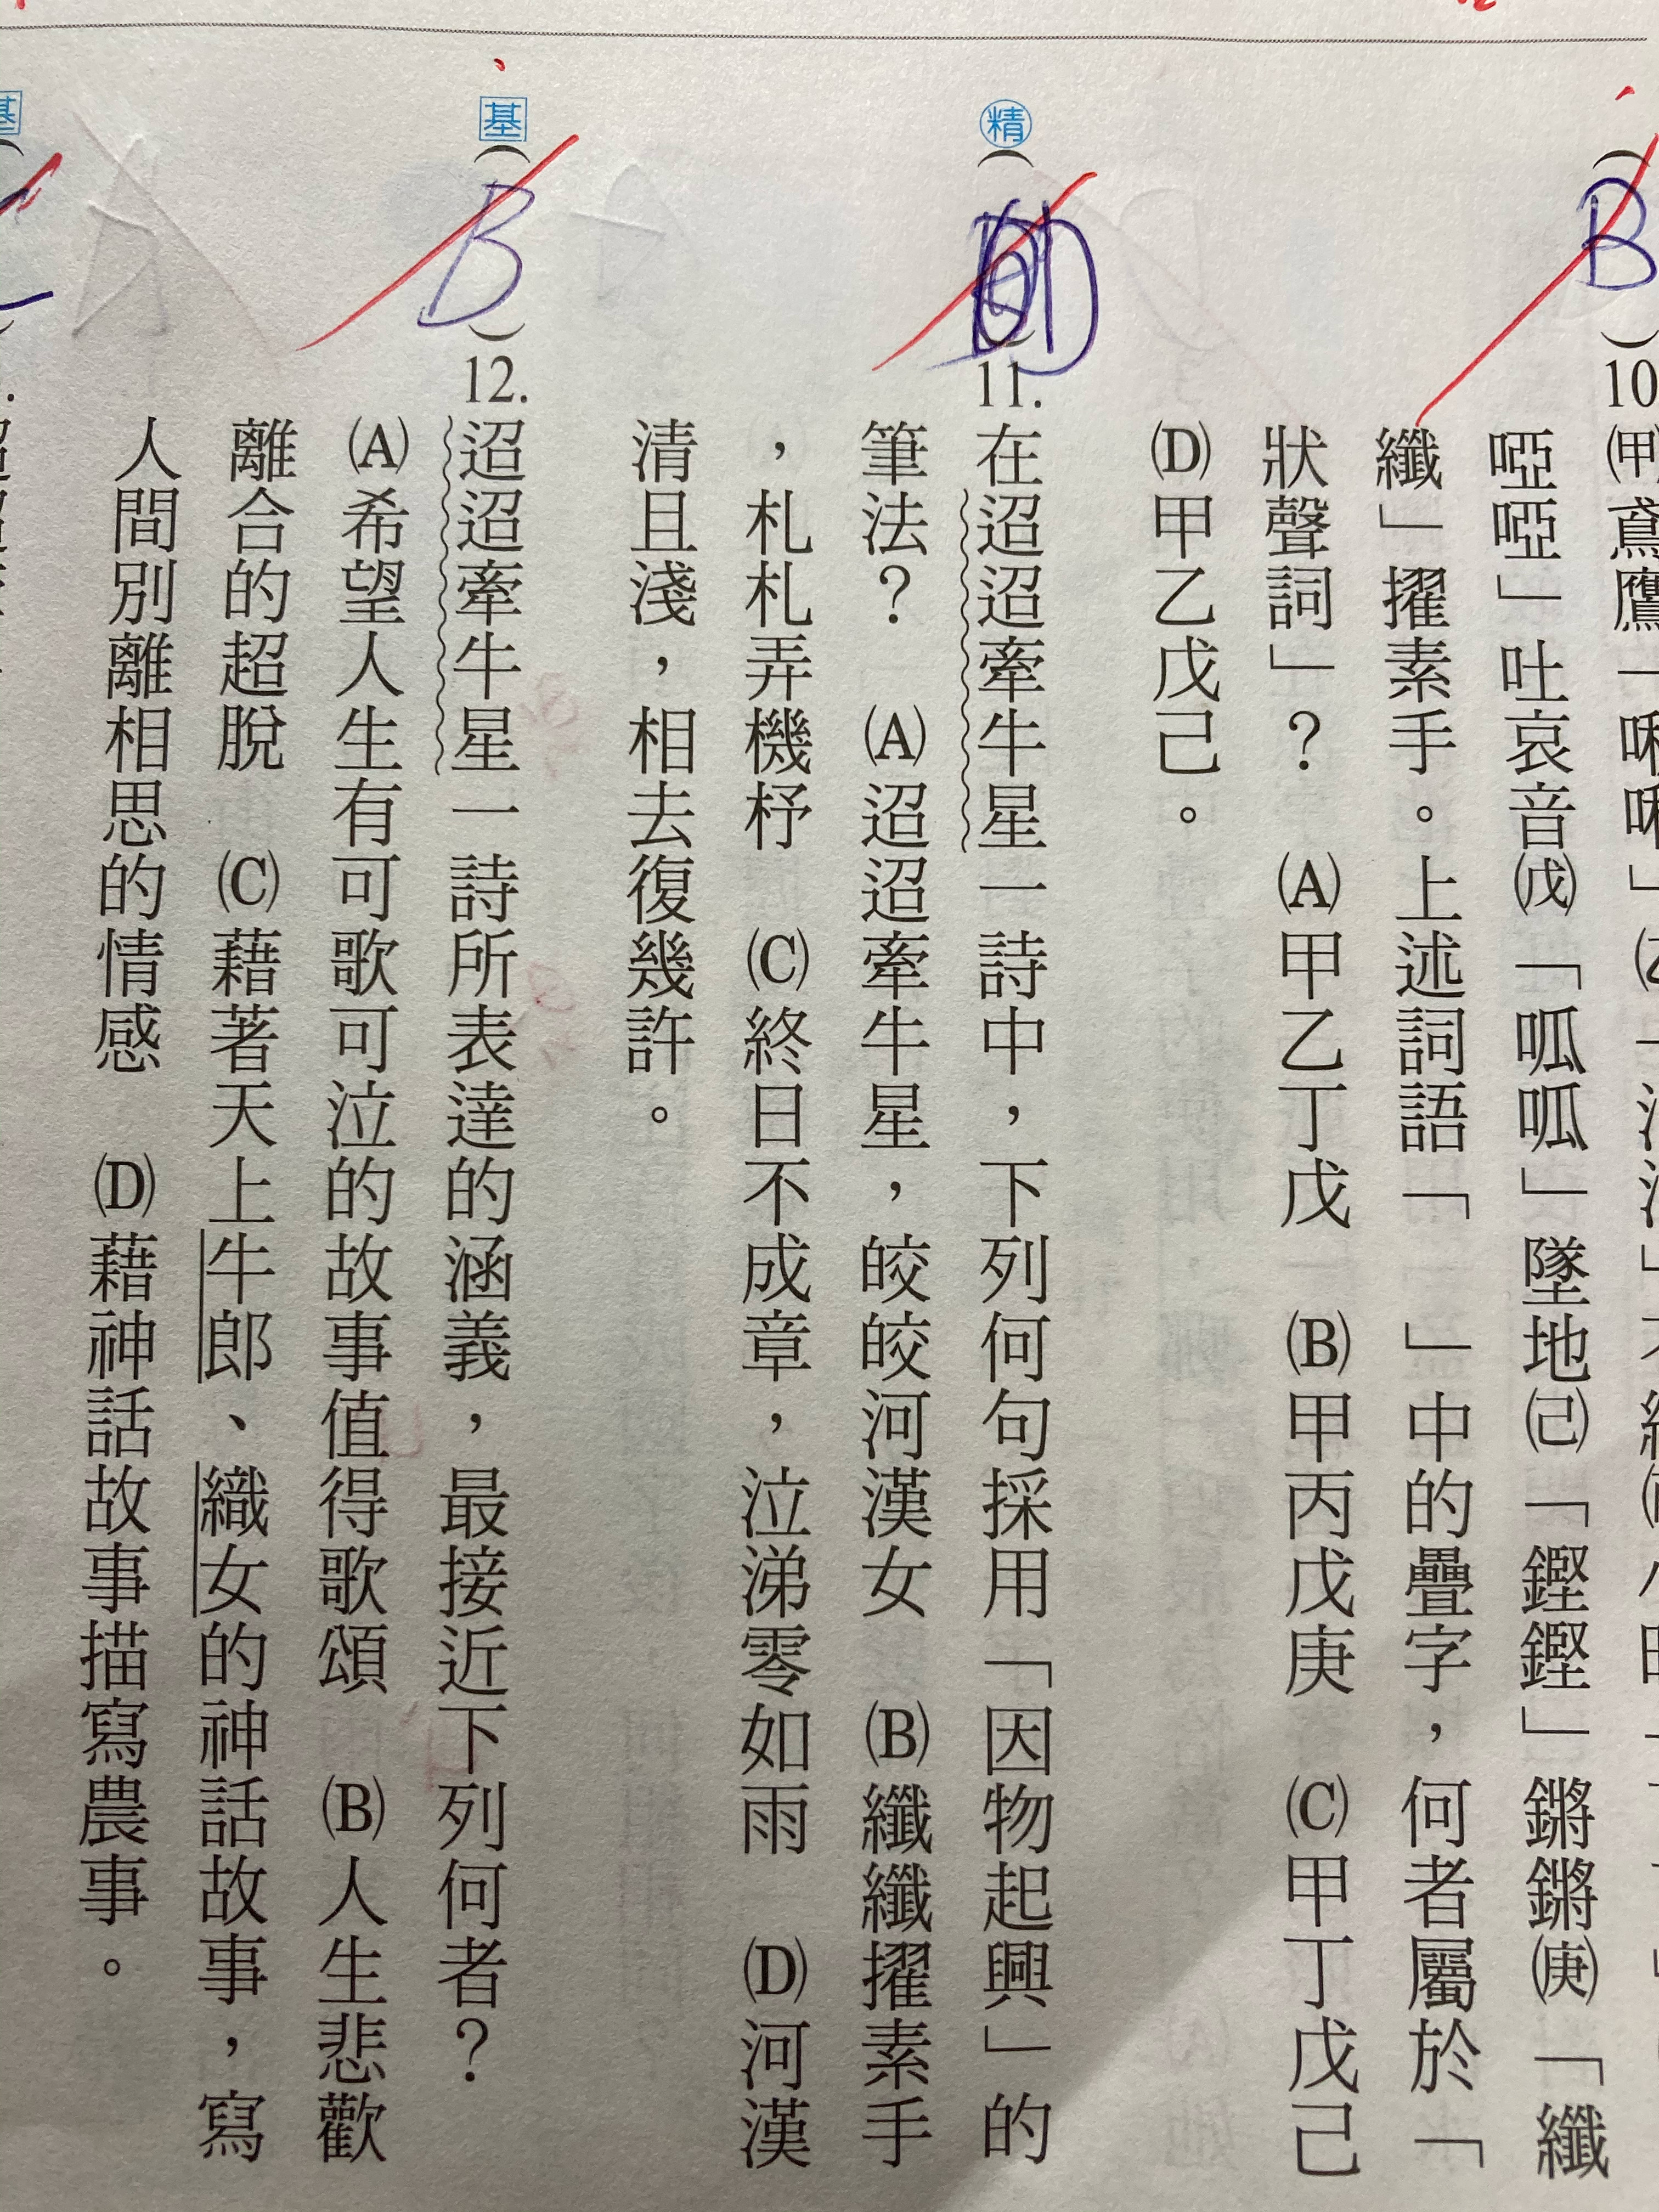 B
10
纖」擢素手。上述詞語「　」中的疊字，何者屬於「
狀聲詞」？　(A)甲乙丁戊　(B)甲丙戊庚　(C)甲丁戊己
(D)甲乙戊己。
啞啞」吐哀音(戊)「呱呱」墜地(己)「鏗鏗」鏘鏘(庚)「纖
精
( D )11.在迢迢牽牛星一詩中，下列何句採用「因物起興」的
筆法？　(A)迢迢牽牛星，皎皎河漢女　(B)纖纖擢素手
，札札弄機杼　(C)終日不成章，泣涕零如雨　(D)河漢
清且淺，相去復幾許。
基
( B )12.迢迢牽牛星一詩所表達的涵義，最接近下列何者？
(A)希望人生有可歌可泣的故事值得歌頌　(B)人生悲歡
離合的超脫　(C)藉著天上牛郎、織女的神話故事，寫
人間別離相思的情感　(D)藉神話故事描寫農事。
基